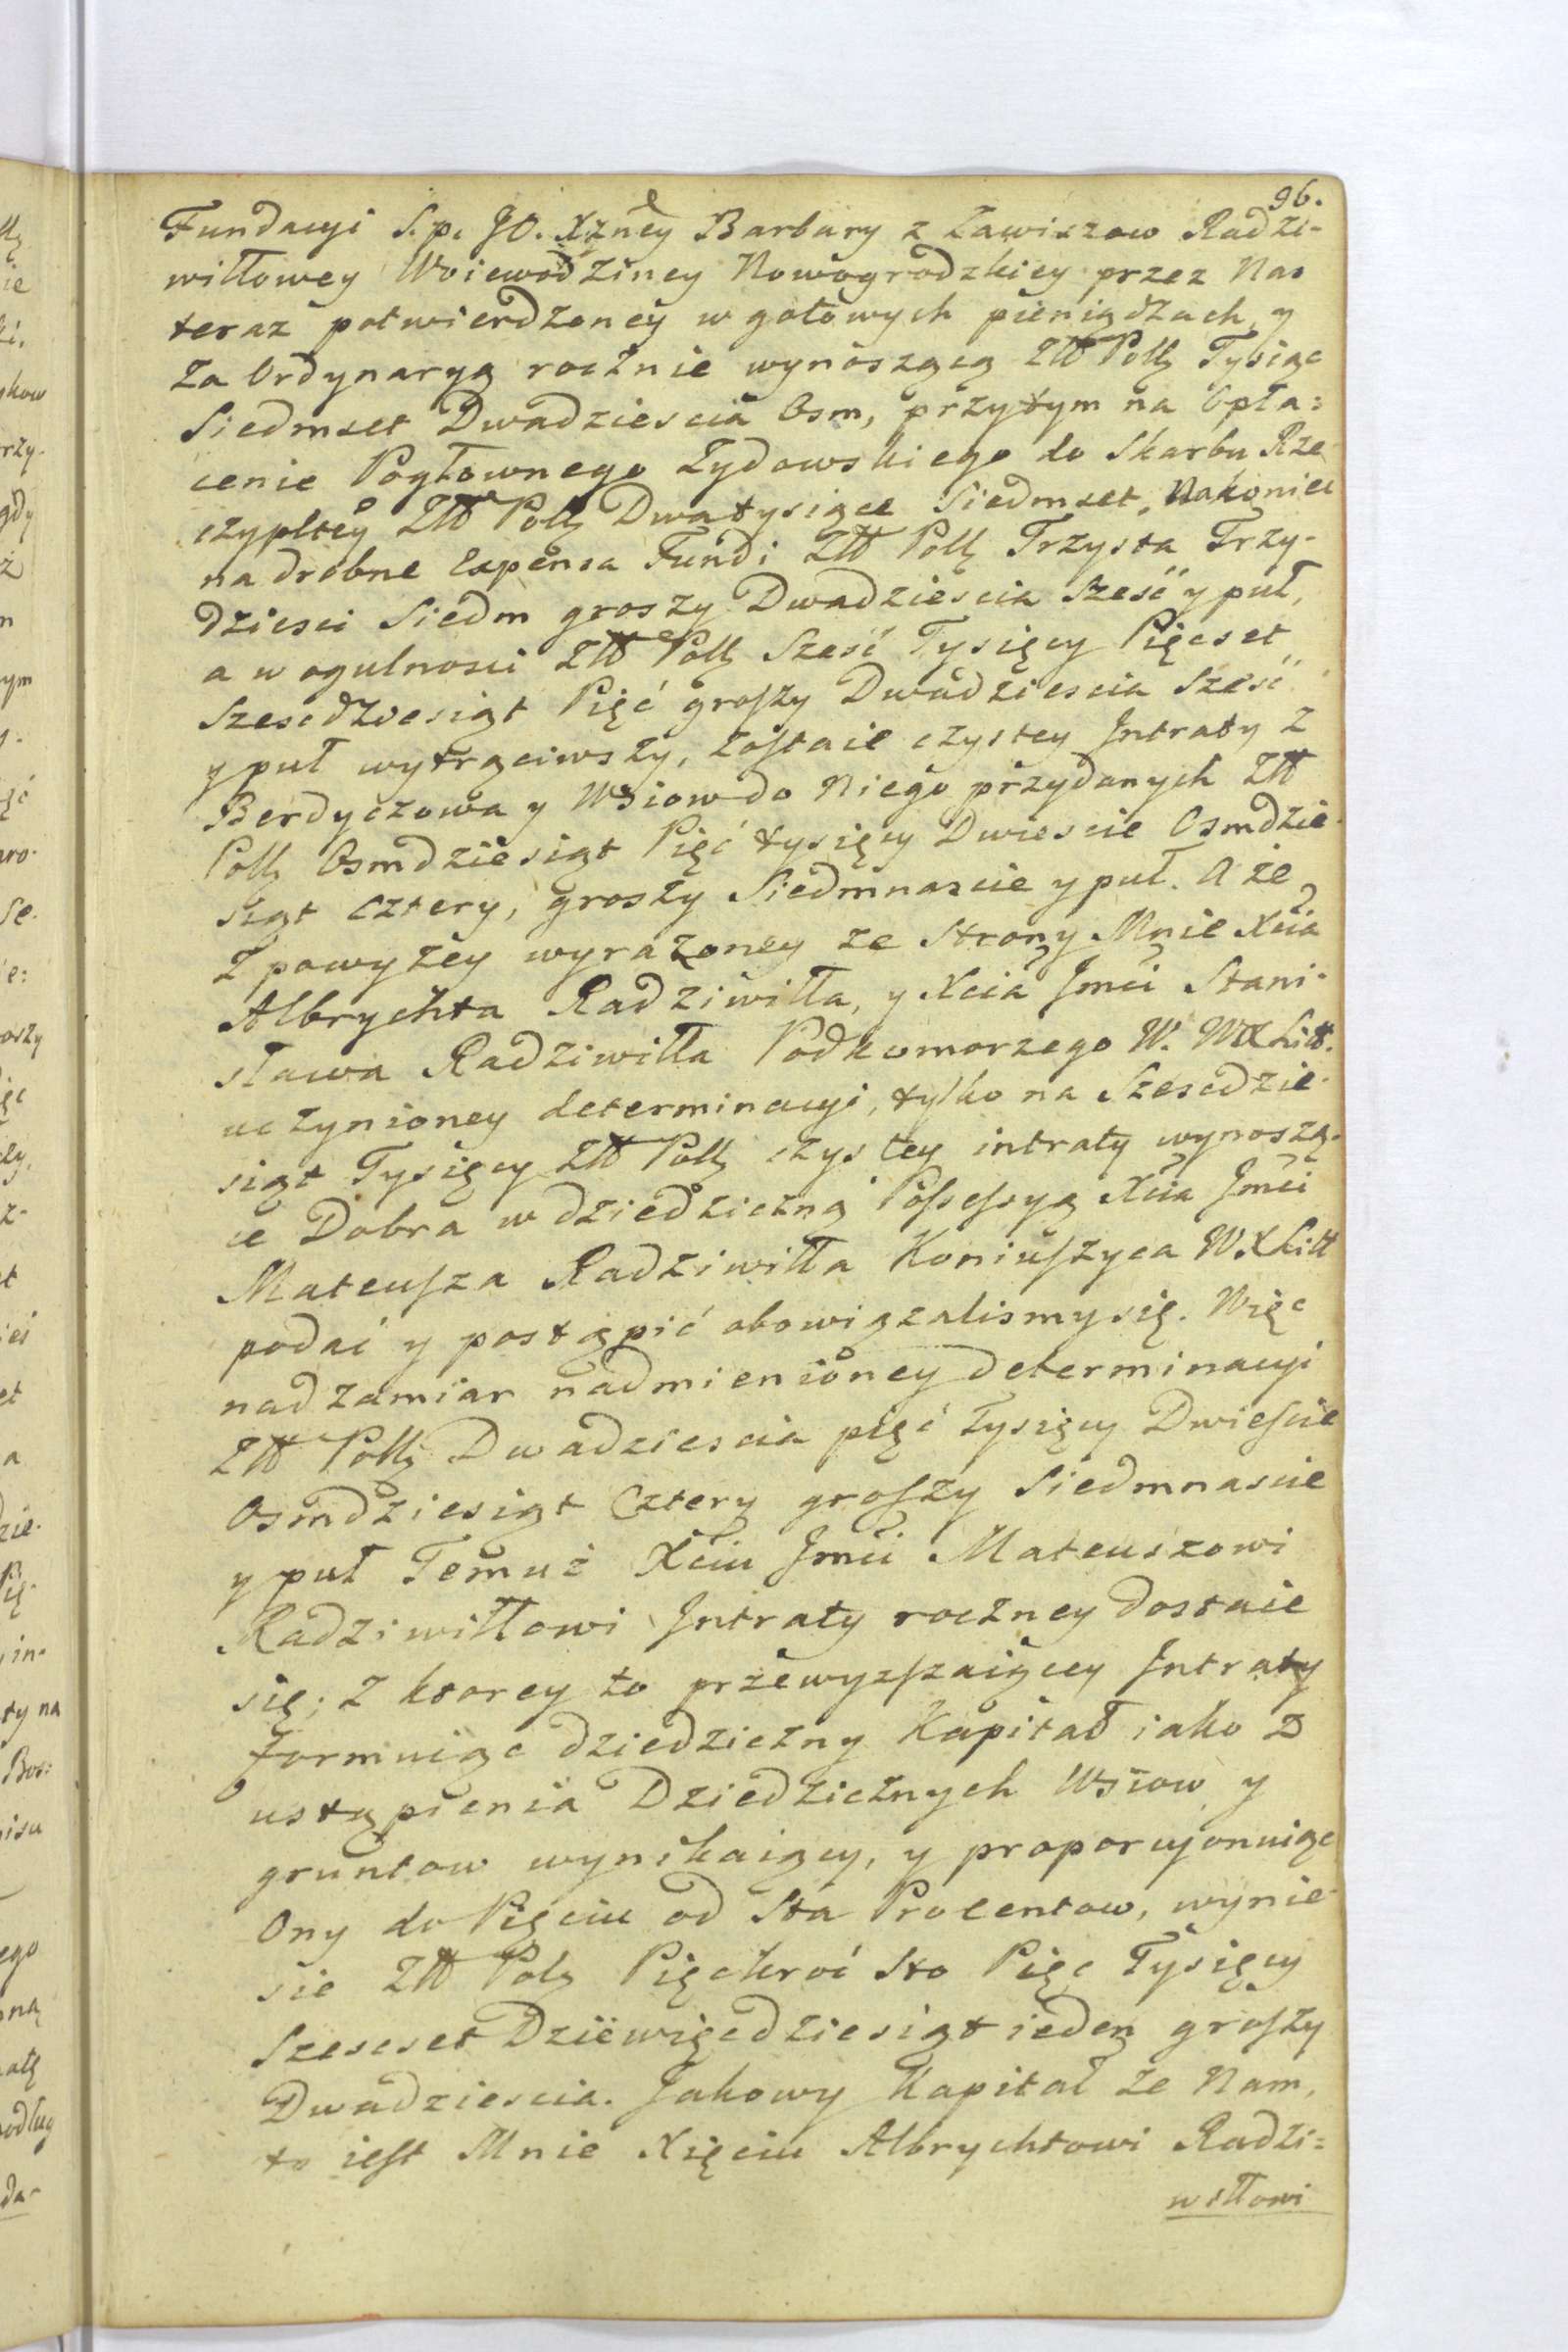 96.
Fundacyi S. p. JO. Xżney Barbary z Zawiszow Radzi-
willowey Woiewodziney Nowogrodzkiey przez Nas
teraz potwierdzoney w gotowych pieniądzach y
za Ordynaryą rocznie wynoszącą Złt Polh Tysiąc
Siedmset Dwadziescia Osm, przytym na Opła:
cenie Pogłownego Zydowskiego do Skarbu Rze
czypltey Złt Polh Dwatysiące Siedmset, Nakoniec
na drobne Expensa Fundi Złt Polh Trzysta Trzy-
dziesci Siedm groszy Dwadziescia Sześć y puł,
a w ogulnosci Złt Polh Sześć Tysięcy Pięcset
Szescdziesiąt Pięć groszy Dwadziescia Sześć
y puł wytrąciwszy, zostaie czystey Intraty z
Berdyczowa y Wsiow do Niego przydanych Złt
Polh Osmdziesiąt Pięć tysięcy Dwiescie Osmdzie
siąt cztery, groszy Siedmnascie y puł. A że
z powyżey wyrażoney ze Strony Mnie Xcia
Albrychta Radziwiłła, y Xcia Jmći Stani-
sława Radziwiłła Podkomorzego W. WXLitt.
uczynioney determinacyi, tylko na Szescdzie-
siąt Tysięcy Złt Polh czystey intraty wynoszą-
ce Dobra w dziedziczną Possessyą Xcia Jmći
Mateusza Radziwiłła Koniuszyca WXLitt
podać y postąpić obowiązalismy się. Więc
nad zamiar nadmienioney determinacyi
Złt Polh Dwadziescia pięć Tysięcy Dwiescie
Osmdziesiąt Cztery groszy Siedmnascie
y puł Temuż Xciu Jmći Mateuszowi
Radziwiłłowi Intraty roczney dostaie
się; z ktorey to przewyzszaiącey Intraty
formuiąc dziedziczny Kapitał iako z
ustąpienia Dziedzicznych Wsiow y
gruntow wynikaiący, y proporcyonuiąc
Ony do Pięciu od Sta Procentow, wynie-
sie Złt Polh Pięckroć Sto Pięc Tysięcy
Szescset Dziewięcdziesiąt ieden groszy
Dwadziescia. Jakowy Kapitał że Nam,
to iest Mnie Xięciu Albrychtowi Radzi=
wiłłowi